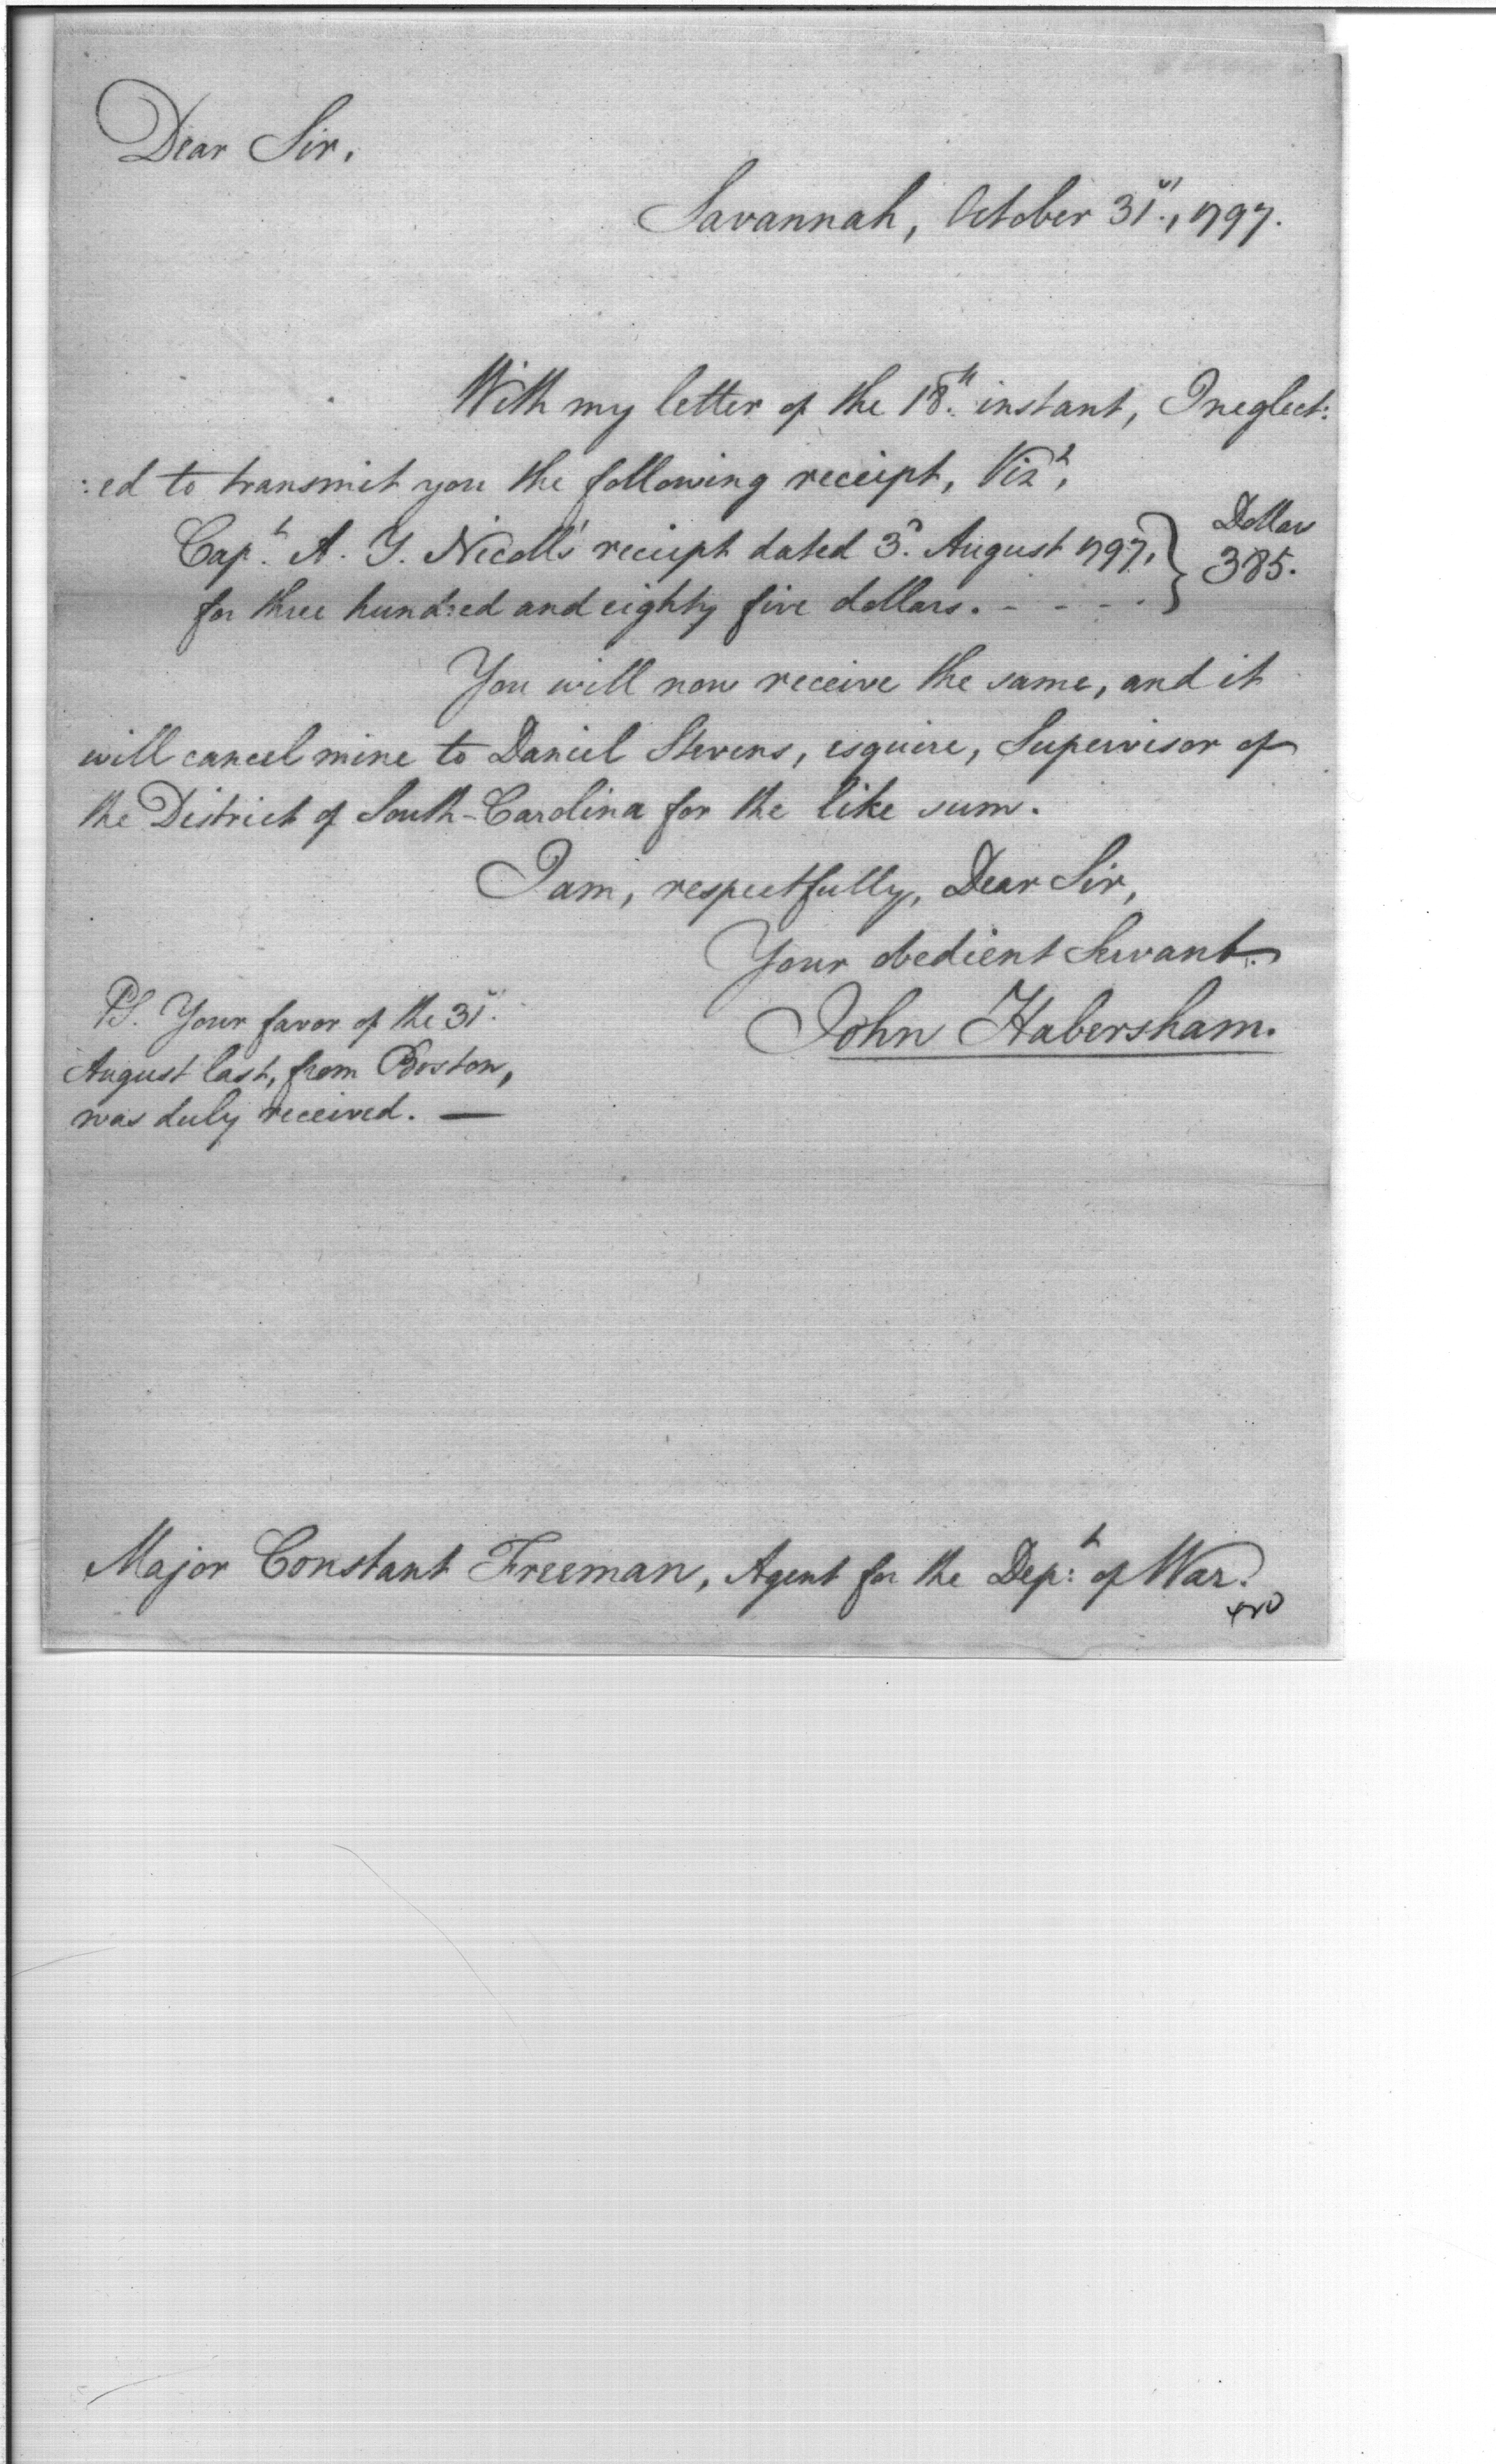 Dear Sir,
Savannah, October 31st, 1797.
With my letter of the 18th instant, I neglect:
:ed to transmit you the following receipt, Vizt,
Capt. A. Y. Nicoll's receipt dated 3d. August 1797, } Dollars
for three hundred and eighty five dollars. - - - - } 385.
You will now receive the same, and it
will cancel mine to Daniel Stevens, esquire, Supervisor of
the District of South-Carolina for the like sum.
I am, respectfully, Dear Sir,
Your obedient Servant
John Habersham.
PS. Your favor of the 31st.
August last, from Boston,
was duly received. —
Major Constant Freeman, Agent for the Dept. of War.